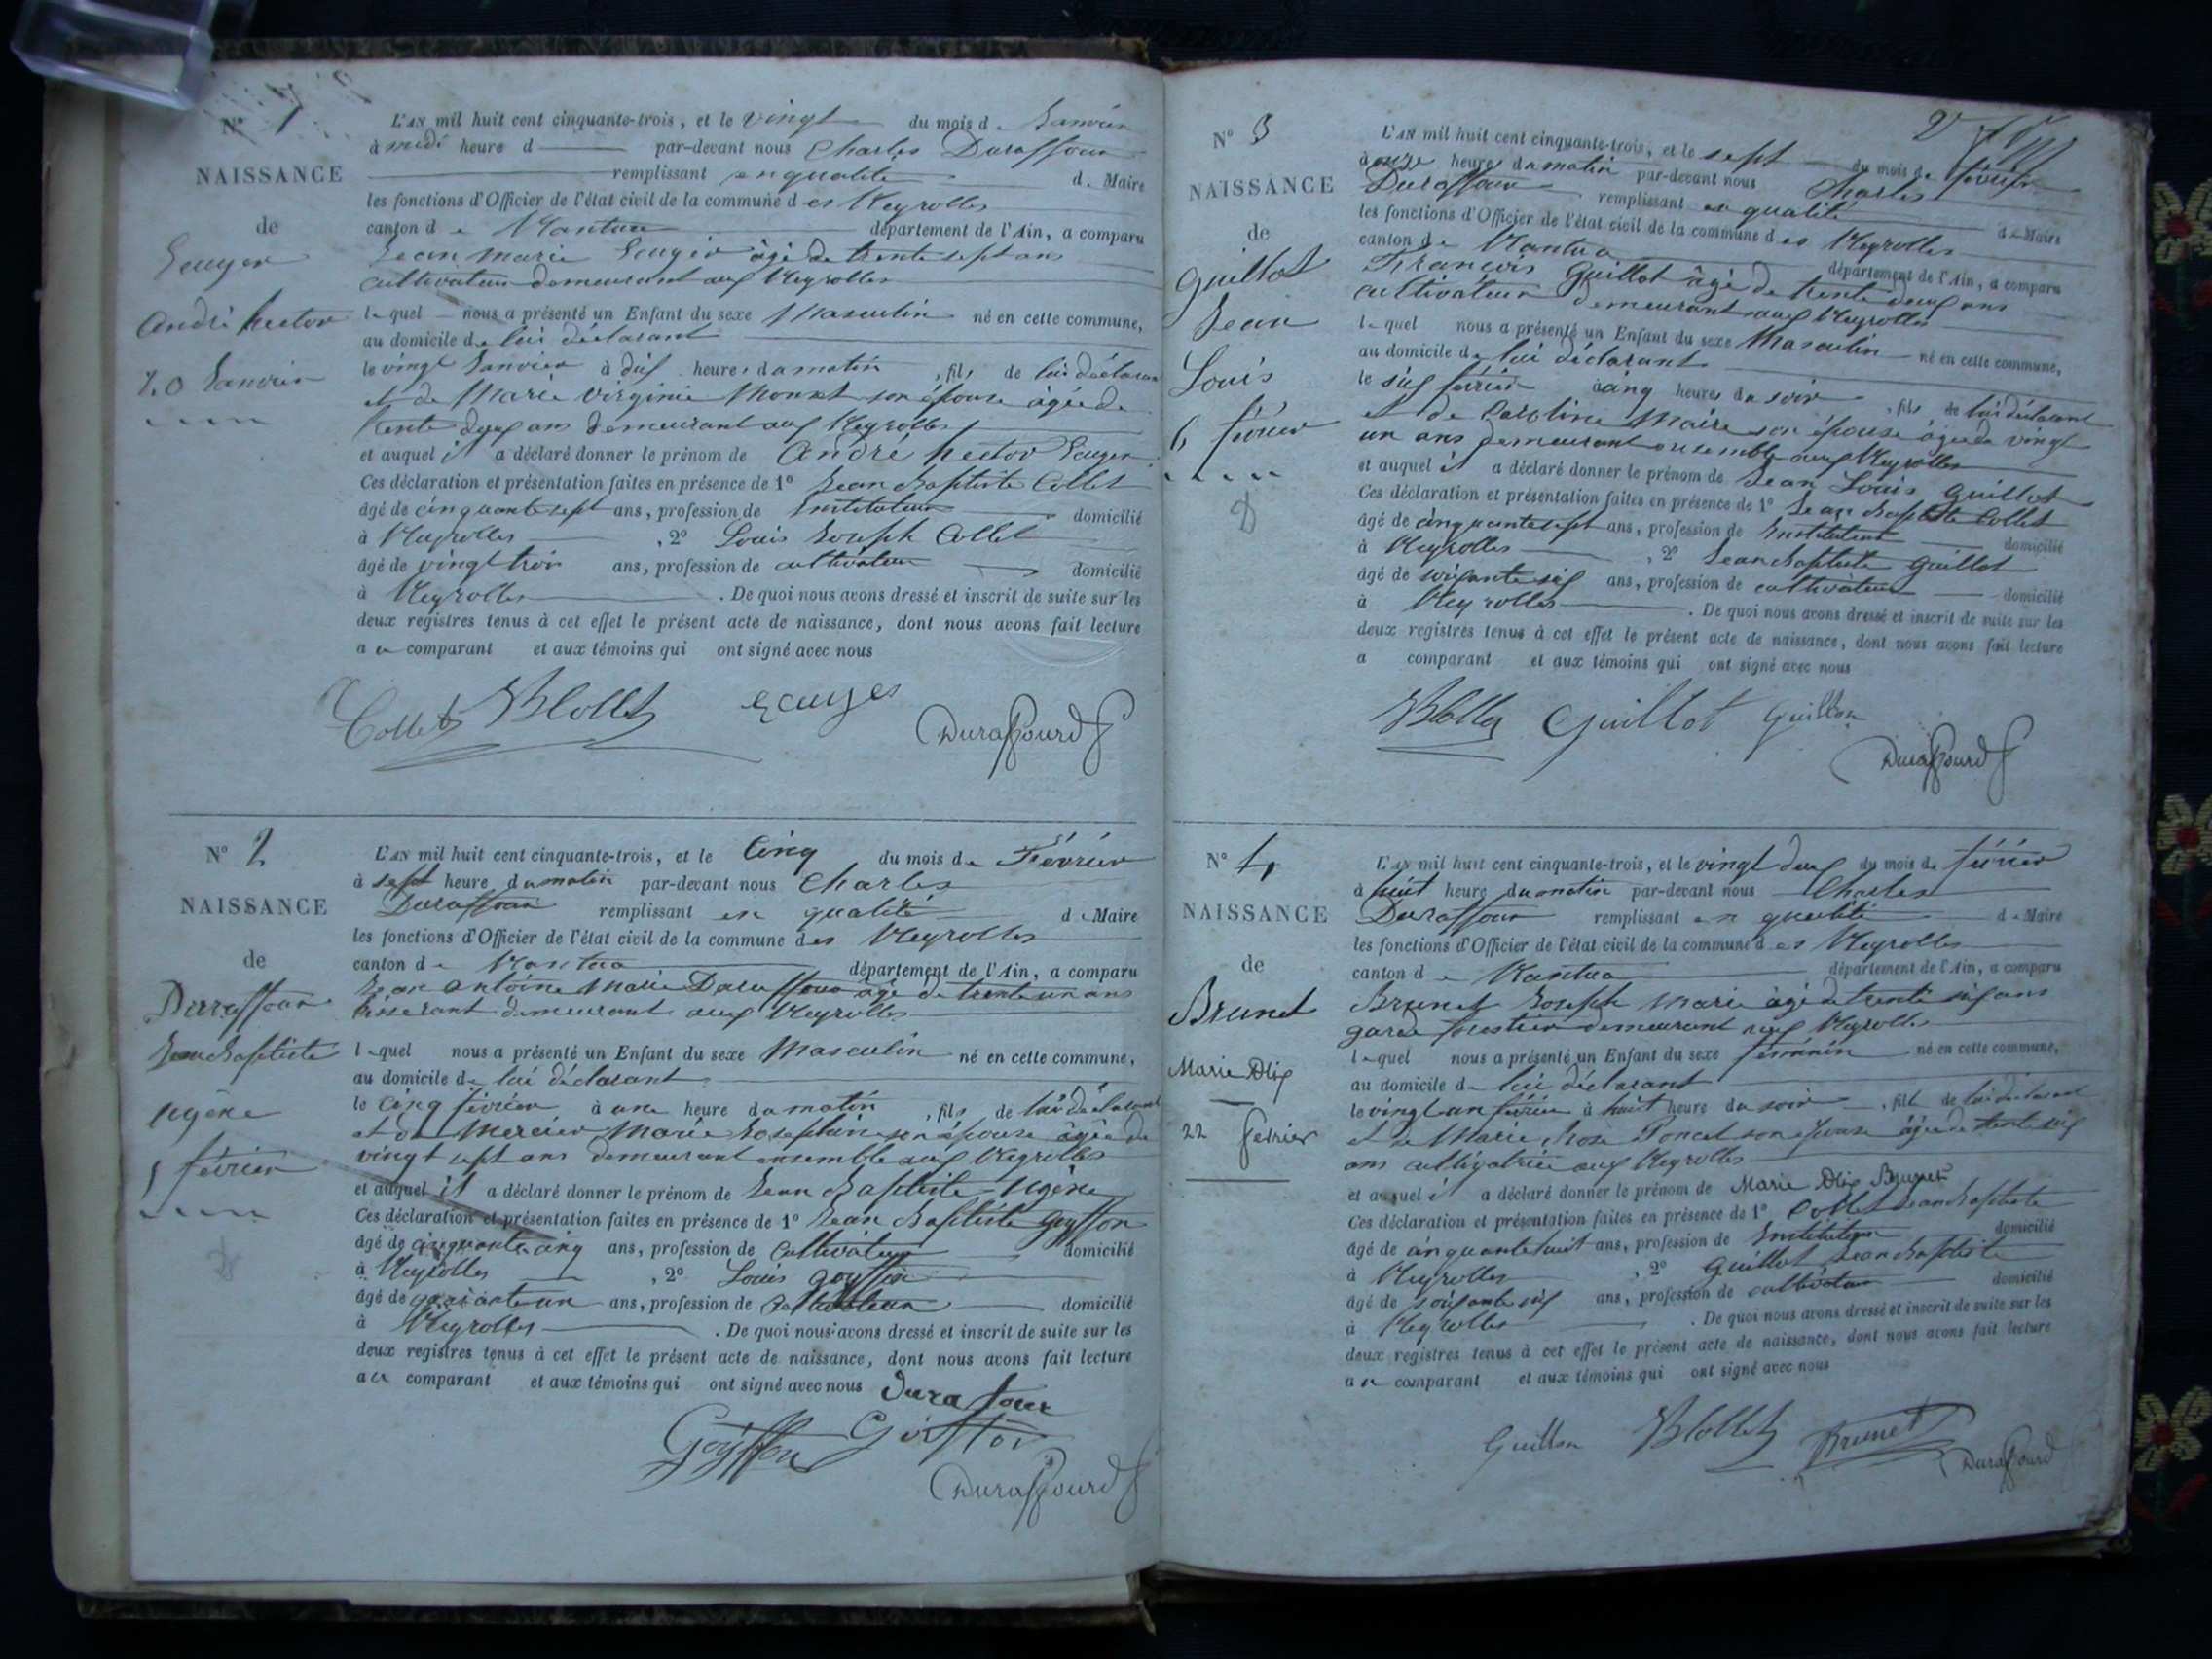 N° 1
NAISSANCE
de
Eauger
André hector
20 Janvier
L'AN mil huit cent cinquante-trois, et le vingt du mois d. Janvier
à midi heure d par-devant nous Charles Duraffour
remplissant en qualité d. Maire
les fonctions d'Officier de l'état civil de la commune des Neyrolles
canton de Nantua département de l'Ain, a comparu
Jean marie Eauger âgé de trente sept ans
cultivateur demeurant aux Neyrolles
lequel nous a présenté un Enfant du sexe Masculin né en cette commune,
au domicile de lui déclarant
le vingt Janvier à dix heures du matin, fils de lui déclarant
et de Marie Virginie Monnet son épouse âgée de
trente deux ans demeurant aux Neyrolles
et auquel il a déclaré donner le prénom de André hector Eauger
Ces déclaration et présentation faites en présence de 1° Jean Baptiste Collet
âgé de cinquante sept ans, profession de Instituteur domicilié
à Neyrolles, 2° Louis Joseph Collet
âgé de vingt trois ans, profession de cultivateur domicilié
à Neyrolles. De quoi nous avons dressé et inscrit de suite sur les
deux registres tenus à cet effet le présent acte de naissance, dont nous avons fait lecture
au comparant et aux témoins qui ont signé avec nous
Collet JBCollet Eauger
Duraffourd
N° 2
NAISSANCE
de
Durraffour
Jean Baptiste
ugène
5 février
L'AN mil huit cent cinquante-trois, et le Cinq du mois de Février
à sept heure du matin par-devant nous Charles
Duraffour remplissant en qualité de Maire
les fonctions d'Officier de l'état civil de la commune des Neyrolles
canton de Nantua département de l'Ain, a comparu
Jean antoine Marie Duraffour âgé de trente un ans
tisserant demeurant aux Neyrolles
lequel nous a présenté un Enfant du sexe Masculin né en cette commune,
au domicile de lui déclarant
le cinq février à une heure du matin, fils de lui déclarant
et de Mercier Marie Josephine son épouse âgée de
vingt sept ans demeurant ensemble aux Neyrolles
et auquel il a déclaré donner le prénom de Jean Baptiste Ugène
Ces déclaration et présentation faites en présence de 1° Jean Baptiste Goyffon
âgé de cinquante cinq ans, profession de Cultivateur domicilié
à Neyrolles, 2° Louis Goyffon
âgé de quarante un ans, profession de domicilié
à Neyrolles. De quoi nous avons dressé et inscrit de suite sur les
deux registres tenus à cet effet le présent acte de naissance, dont nous avons fait lecture
au comparant et aux témoins qui ont signé avec nous Durafour
Goyffon Goiffon
Duraffourd
2
N° 3
NAISSANCE
de
Guillot
Jean
Louis
6 février
L'AN mil huit cent cinquante-trois, et le sept du mois de février
à onze heures du matin par-devant nous Charles
Duraffour remplissant en qualité de Maire
les fonctions d'Officier de l'état civil de la commune des Neyrolles
canton de Nantua département de l'Ain, a comparu
François Guillot âgé de trente deux ans
cultivateur demeurant aux Neyrolles
lequel nous a présenté un Enfant du sexe Masculin né en cette commune,
au domicile de lui déclarant
le six février à cinq heures du soir, fils de lui déclarant
et de Caroline Maire son épouse âgée de vingt
un ans demeurant ensemble aux Neyrolles
et auquel il a déclaré donner le prénom de Jean Louis Guillot
Ces déclaration et présentation faites en présence de 1° Jean Baptiste Collet
âgé de cinquante sept ans, profession de Instituteur domicilié
à Neyrolles, 2° Jean Baptiste Guillot
âgé de soixante six ans, profession de cultivateur domicilié
à Neyrolles. De quoi nous avons dressé et inscrit de suite sur les
deux registres tenus à cet effet le présent acte de naissance, dont nous avons fait lecture
a comparant et aux témoins qui ont signé avec nous
JBCollet Guillot Guillon
Duraffourd
N° 4
NAISSANCE
de
Brunet
Marie Alix
22 fevrier
L'AN mil huit cent cinquante-trois, et le vingt deux du mois de février
à huit heure du matin par-devant nous Charles
Duraffour remplissant en qualité de Maire
les fonctions d'Officier de l'état civil de la commune des Neyrolles
canton de Nantua département de l'Ain, a comparu
Brunet Joseph Marie âgé de trente six ans
garde forestier demeurant aux Neyrolles
lequel nous a présenté un Enfant du sexe féminin né en cette commune,
au domicile de lui déclarant
le vingt un février à huit heure du soir, fille de lui déclarant
et de Marie Rose Poncet son épouse âgée de trente six
ans cultivatrice aux Neyrolles
et auquel il a déclaré donner le prénom de Marie Alix Brunet
Ces déclaration et présentation faites en présence de 1° Collet Jean Baptiste
âgé de cinquante huit ans, profession de Instituteur domicilié
à Neyrolles, 2° Guillot Jean Baptiste
âgé de soixante six ans, profession de cultivateur domicilié
à Neyrolles. De quoi nous avons dressé et inscrit de suite sur les
deux registres tenus à cet effet le présent acte de naissance, dont nous avons fait lecture
au comparant et aux témoins qui ont signé avec nous
Guillon JBCollet Brunet
Duraffourd